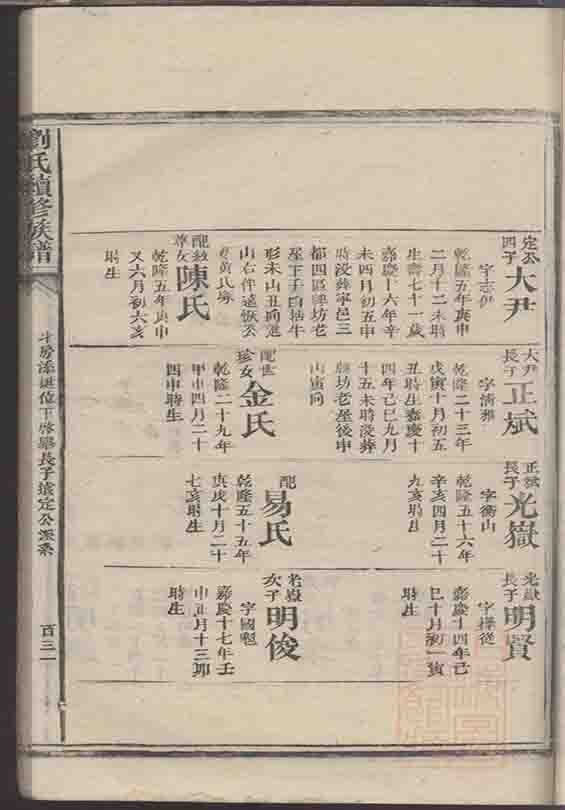 劉氏續修族譜
百三一
定丕四子
大尹
字志伊
乾隆五年庚申
二月十二未時
生壽七十一歲
嘉慶十六年辛
未四月初五申
時没葬寧邑三
都四區牌坊老
屋下手白牯牛
形未山丑向
山右伴遠
黃氏塚
配
尊女
陳氏
乾隆五年庚申
又六月初六亥
時生
大尹長子
正斌
字清雅
乾隆二十三年
戊寅十月初五
丑時生嘉慶十
四年己巳九月
十五未時没葬
牌坊老屋後申
山寅向
配世珍女
金氏
乾隆二十九年
甲申四月二十
四申時生
正斌長子
光嶽
字衡山
乾隆五十六年
辛亥四月二十
九亥時生
配
易氏
乾隆五十五年
庚戌十月二十
七亥時生
光嶽長子
明賢
嘉慶十四年己
巳十月初一寅
時生
光嶽次子
明俊
字國魁
嘉慶十七年壬
申正月十三卯
時生